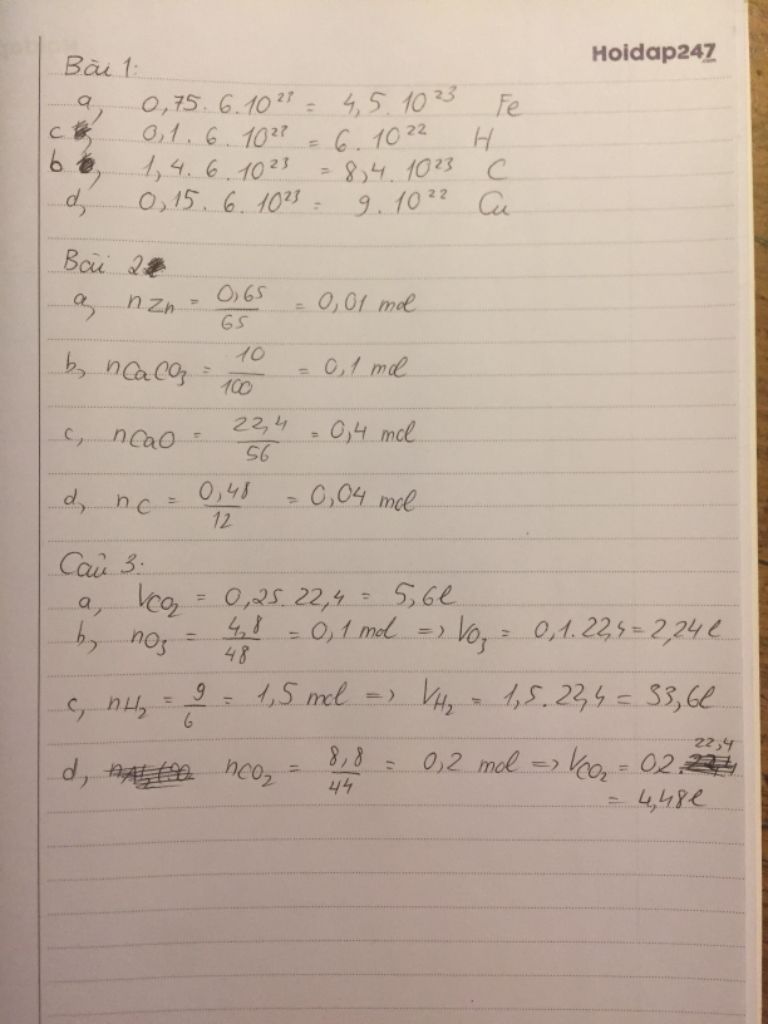 Hoidap247
Bài 1:
a, 0,75. 6. 10²³ = 4,5. 10²³ Fe
c, 0,1. 6. 10²³ = 6. 10²² H
b, 1,4. 6. 10²³ = 8,4. 10²³ C
d, 0,15. 6. 10²³ = 9. 10²² Cu
Bài 2
a, nZn = 0,65/65 = 0,01 mol
b, nCaCO₃ = 10/100 = 0,1 mol
c, nCaO = 22,4/56 = 0,4 mol
d, nC = 0,48/12 = 0,04 mol
Câu 3:
a, VCO₂ = 0,25. 22,4 = 5,6l
b, nO₃ = 4,8/48 = 0,1 mol => VO₃ = 0,1. 22,4 = 2,24l
c, nH₂ = 9/6 = 1,5 mol => VH₂ = 1,5. 22,4 = 33,6l
d, nCO₂ = 8,8/44 = 0,2 mol => VCO₂ = 02. 22,4
= 4,48l